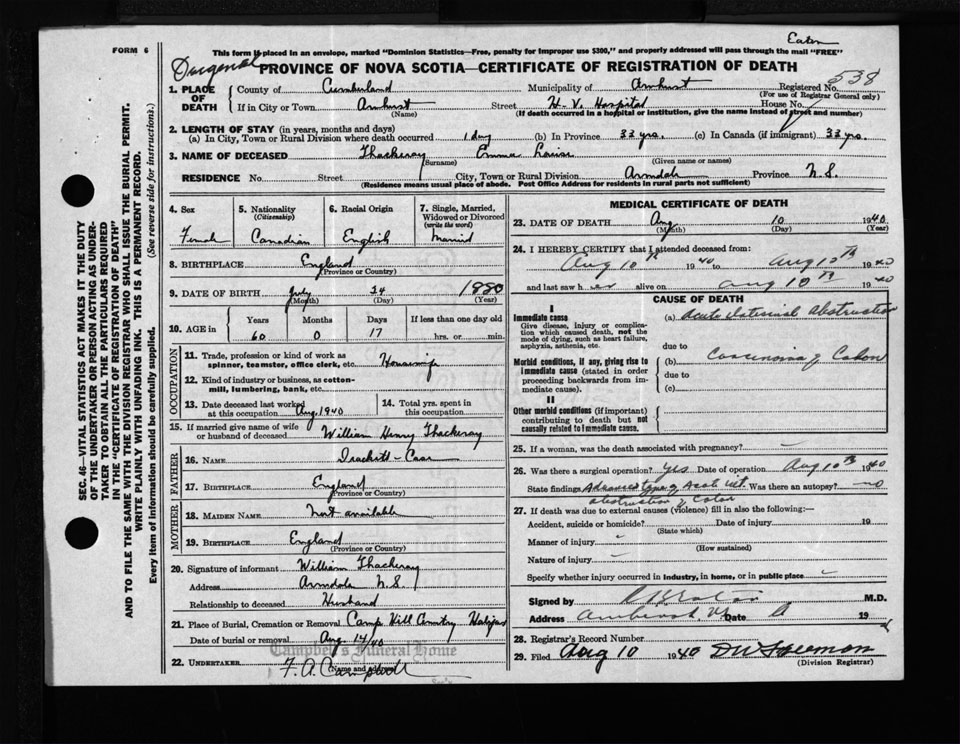 Eaton
FORM 6
This form if placed in an envelope, marked "Dominion Statistics—Free, penalty for improper use $300," and properly addressed will pass through the mail "FREE"
PROVINCE OF NOVA SCOTIA—CERTIFICATE OF REGISTRATION OF DEATH
538
1. PLACE OF DEATH
County of Cumberland Municipality of Amherst Registered No.
(For use of Registrar General only)
If in City or Town Amherst Street H. V. Hospital House No.
(Name) (If death occurred in a hospital or institution, give the name instead of street and number)
2. LENGTH OF STAY (in years, months and days)
(a) In City, Town or Rural Division where death occurred 1 day (b) In Province 33 yrs. (c) In Canada (if immigrant) 33 yrs.
3. NAME OF DECEASED Thackeray Emma Louise
(Surname) (Given name or names)
RESIDENCE No. Street City, Town or Rural Division Armdale Province N.S.
(Residence means usual place of abode. Post Office Address for residents in rural parts not sufficient)
4. Sex
Female
5. Nationality
(Citizenship)
Canadian
6. Racial Origin
English
7. Single, Married, Widowed or Divorced
(write the word)
Married
8. BIRTHPLACE England
(Province or Country)
9. DATE OF BIRTH July 24 1880
(Month) (Day) (Year)
10. AGE in
Years Months Days If less than one day old
60 0 17 hrs. or min.
OCCUPATION
11. Trade, profession or kind of work as spinner, teamster, office clerk, etc. Housewife
12. Kind of industry or business, as cotton-mill, lumbering, bank, etc.
13. Date deceased last worked at this occupation Aug. 1940
14. Total yrs. spent in this occupation.
15. If married give name of wife or husband of deceased William Henry Thackeray
FATHER
16. NAME
17. BIRTHPLACE England
(Province or Country)
MOTHER
18. MAIDEN NAME Not available
19. BIRTHPLACE England
(Province or Country)
20. Signature of informant William Thackeray
Address Armdale N.S.
Relationship to deceased Husband
21. Place of Burial, Cremation or Removal Camp Hill Halifax
Date of burial or removal Aug. 14/40
Campbell's Funeral Home
22. UNDERTAKER F. A. Campbell
(Name and address)
MEDICAL CERTIFICATE OF DEATH
23. DATE OF DEATH Aug 10 1940
(Month) (Day) (Year)
24. I HEREBY CERTIFY that I attended deceased from:
Aug 10th 1940 to Aug 10th 1940
and last saw her alive on Aug 10th 1940
CAUSE OF DEATH
I
Immediate cause
Give disease, injury or complication which caused death, not the mode of dying, such as heart failure, asphyxia, asthenia, etc.
(a) Acute Intestinal Obstruction
due to
Morbid conditions, if any, giving rise to immediate cause (stated in order proceeding backwards from immediate cause).
(b) Carcinoma of Colon
due to
(c)
II
Other morbid conditions (if important) contributing to death but not causally related to immediate cause.
25. If a woman, was the death associated with pregnancy?
26. Was there a surgical operation? Yes Date of operation Aug 10th 1940
State findings Advanced Was there an autopsy? no
obstruction of Colon
27. If death was due to external causes (violence) fill in also the following:—
Accident, suicide or homicide? Date of injury 19
(State which)
Manner of injury
(How sustained)
Nature of injury
Specify whether injury occurred in industry, in home, or in public place
Signed by M.D.
Address Amherst Date 19
28. Registrar's Record Number
29. Filed Aug 10 1940
(Division Registrar)
SEC. 46—VITAL STATISTICS ACT MAKES IT THE DUTY
OF THE UNDERTAKER OR PERSON ACTING AS UNDER-
TAKER TO OBTAIN ALL THE PARTICULARS REQUIRED
IN THE "CERTIFICATE OF REGISTRATION OF DEATH"
AND TO FILE THE SAME WITH THE DIVISION REGISTRAR WHO SHALL ISSUE THE BURIAL PERMIT.
WRITE PLAINLY WITH UNFADING INK. THIS IS A PERMANENT RECORD.
Every item of information should be carefully supplied. (See reverse side for instructions).